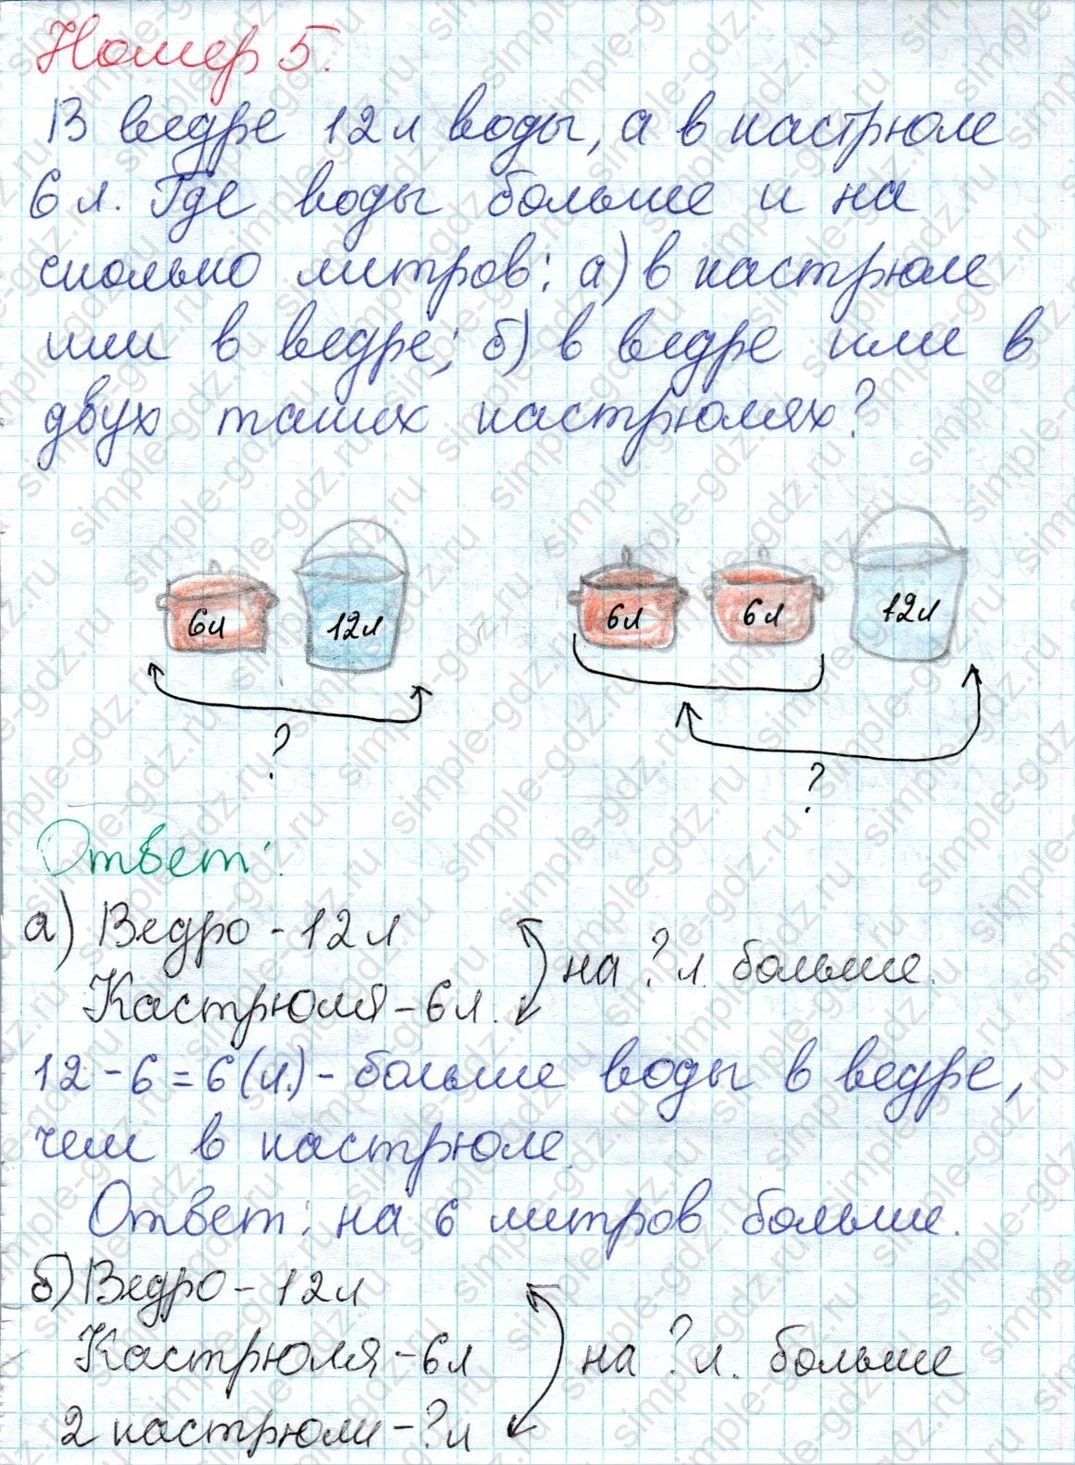 Номер 5.
В ведре 12 л воды, а в кастрюле
6 л. Где воды больше и на
сколько литров: а) в кастрюле
или в ведре; б) в ведре или в
двух таких кастрюлях?
6л 12л 6л 6л 12л
?
?
Ответ:
а) Ведро - 12 л
Кастрюля - 6 л. на ? л. больше.
12 - 6 = 6 (л.) - больше воды в ведре,
чем в кастрюле.
Ответ: на 6 литров больше.
б) Ведро - 12 л
Кастрюля - 6 л на ? л. больше
2 кастрюли - ? л
simple-gdz.ru